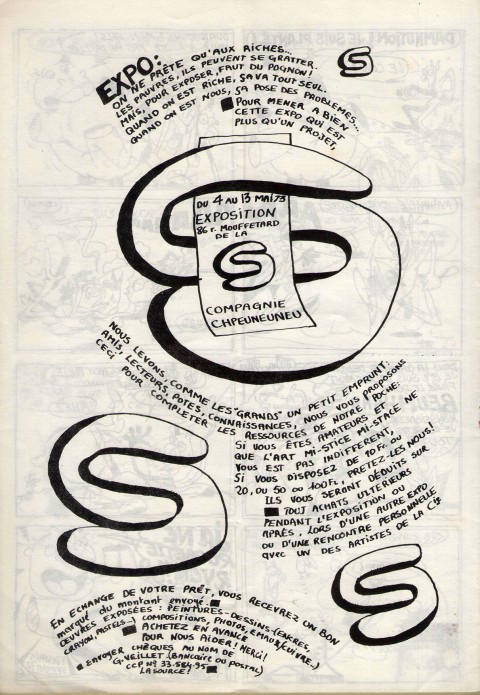 EXPO:
ON NE PRÊTE QU'AUX RICHES...
LES PAUVRES, ILS PEUVENT SE GRATTER.
MAIS, POUR EXPOSER, FAUT DU POGNON!
QUAND ON EST RICHE, ÇA VA TOUT SEUL.
QUAND ON EST NOUS, ÇA POSE DES PROBLÈMES...
POUR MENER A BIEN
CETTE EXPO QUI EST
PLUS QU'UN PROJET,
DU 4 AU 13 MAI 73
EXPOSITION
86 r. MOUFFETARD
DE LA
COMPAGNIE
CHPEUNEUNEU
NOUS LEVONS, COMME LES "GRANDS" UN PETIT EMPRUNT:
AMIS, LECTEURS, POTES, CONNAISSANCES, NOUS VOUS PROPOSONS
CECI POUR COMPLETER LES RESSOURCES DE NOTRE POCHE:
SI VOUS ÊTES AMATEURS ET
QUE L'ART MI-STICE MI-STACE NE
VOUS EST PAS INDIFFERENT,
SI VOUS DISPOSEZ DE 10 Fr. OU
20, OU 50 OU 100Fr., PRETEZ-LES NOUS!
ILS VOUS SERONT DÉDUITS SUR
TOUT ACHATS ULTÉRIEURS
PENDANT L'EXPOSITION OU
APRÈS, LORS D'UNE AUTRE EXPO
OU D'UNE RENCONTRE PERSONNELLE
avec UN DES ARTISTES DE LA Cie
EN ECHANGE DE VOTRE PRÊT, VOUS RECEVREZ UN BON
marqué du montant envoyé.
ŒUVRES EXPOSÉES : PEINTURES-DESSINS-(ENCRES,
CRAYON, PASTELS...) COMPOSITIONS, PHOTOS, EMAUX/CUIVRE...)
ACHETEZ EN AVANCE
POUR NOUS AIDER! MERCI!
ENVOYER CHÈQUES AU NOM DE
G. VEILLET (BANCAIRE OU POSTAL)
CCP Nº 33.584.95
LA SOURCE!